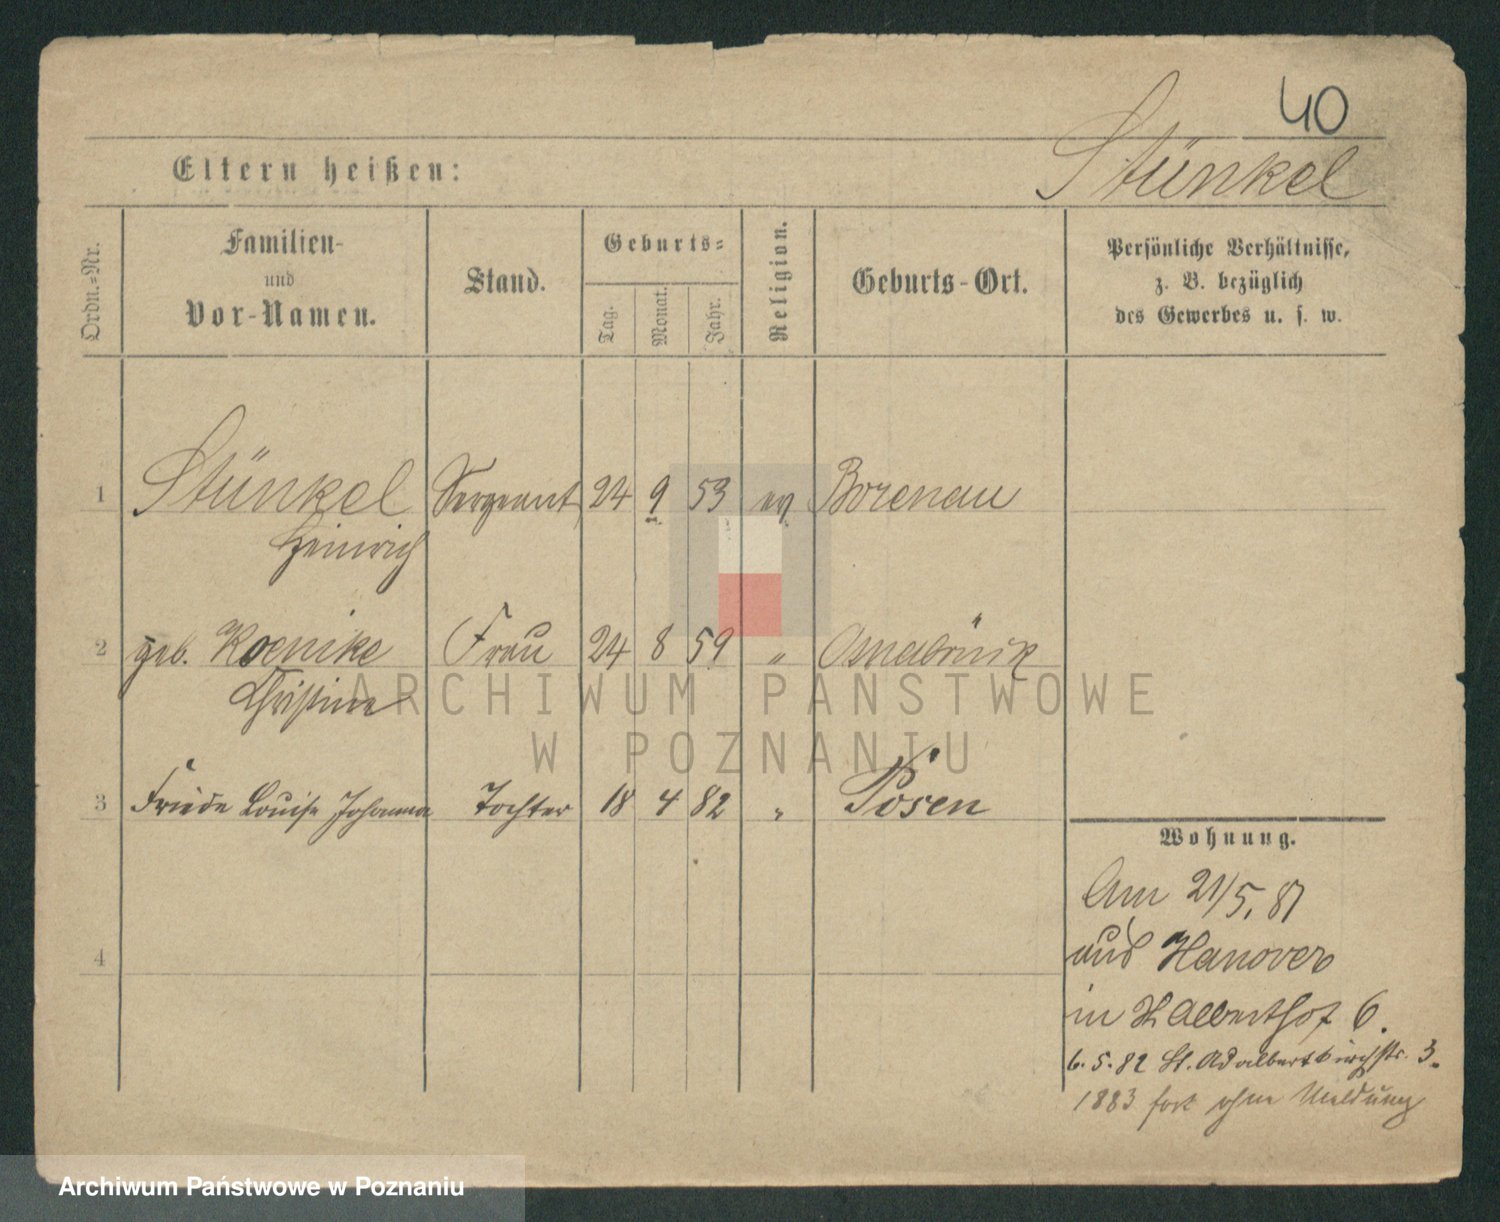 40
Eltern heißen:
Stünkel
Ordn.-Nr.
Familien-
und
Vor-Namen.
Stand.
Geburts-
Tag.
Monat.
Jahr.
Religion.
Geburts-Ort.
Persönliche Verhältnisse,
z. B. bezüglich
des Gewerbes u. s. w.
1 Stünkel Sergeant 24 9 53 ev Borenau
Heinrich
2 geb. Koenike Frau 24 8 59 " Osnabrück
Christine
ARCHIWUM PAŃSTWOWE
W POZNANIU
3 Friede Louise Johanna Tochter 18 4 82 " Posen
Wohnung.
Am 21/5. 81
aus Hanover
4
in 6.
6. 5. 82 St. Adalbertkirchstr. 3.
1883 fort ohne Meldung
Archiwum Państwowe w Poznaniu